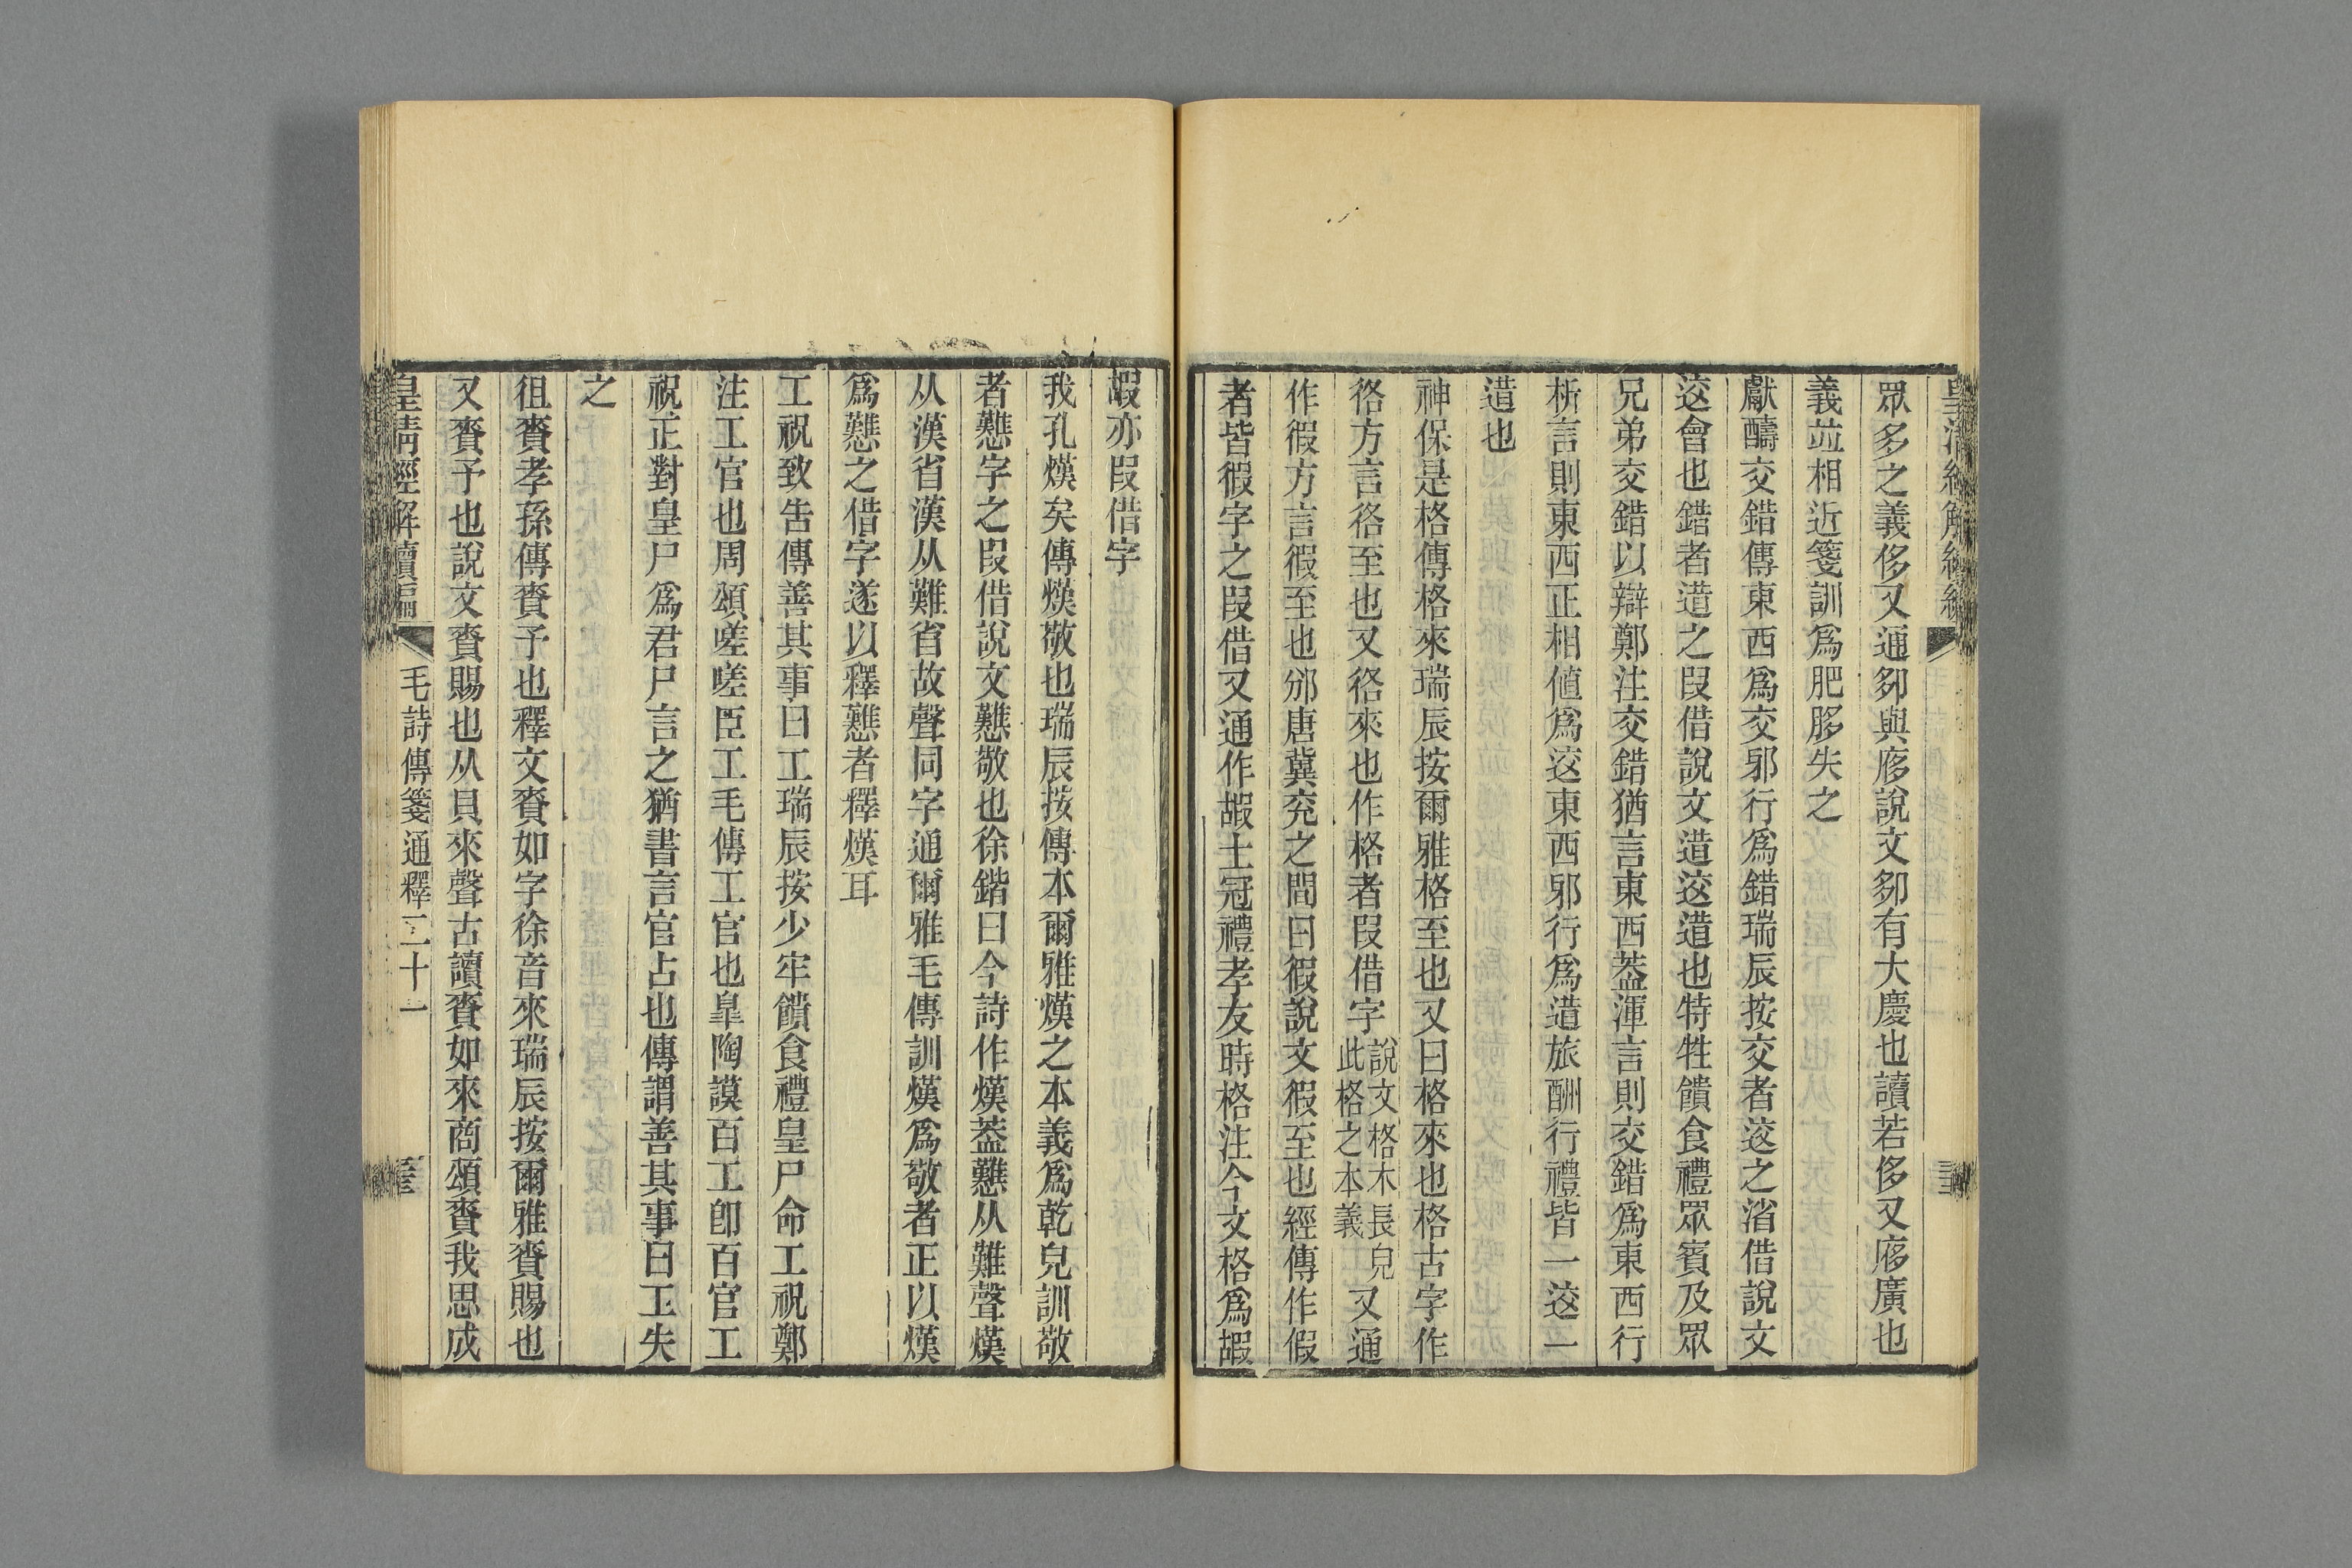 眾多之義侈又通夛與㢋說文夛有大慶也讀若侈又㢋廣也
義竝相近箋訓爲肥䏧失之
獻醻交錯傳東西爲交邪行爲錯瑞辰按交者䢒之渻借說文
䢒會也錯者逪之叚借說文逪䢒逪也特牲饋食禮眾賓及眾
兄弟交錯以辯鄭注交錯猶言東西葢渾言則交錯爲東西行
析言則東西正相値爲䢒東西邪行爲逪旅酬行禮皆一䢒一
逪也
神保是格傳格來瑞辰按爾雅格至也又曰格來也格古字作
㣟方言㣟至也又㣟來也作格者叚借字說文格木長皃此格之本義又通
作徦方言徦至也邠唐冀兖之間曰徦說文徦至也經傳作假
者皆徦字之叚借又通作嘏士冠禮孝友時格注今文格爲嘏
嘏亦叚借字
我孔熯矣傳熯敬也瑞辰按傳本爾雅熯之本義爲乾皃訓敬
者戁字之叚借說文戁敬也徐鍇曰今詩作熯葢戁从難聲熯
从漢省漢从難省故聲同字通爾雅毛傳訓熯爲敬者正以熯
爲戁之借字遂以釋戁者釋熯耳
工祝致告傳善其事曰工瑞辰按少牢饋食禮皇尸命工祝鄭
注工官也周頌嗟嗟臣工毛傳工官也臯陶謨百工卽百官工
祝正對皇尸爲君尸言之猶書言官占也傳謂善其事曰工失
之
徂賚孝孫傳賚予也釋文賚如字徐音來瑞辰按爾雅賚賜也
又賚予也說文賚賜也从貝來聲古讀賚如來商頌賚我思成
皇清經解續編
毛詩傳箋通釋二十一